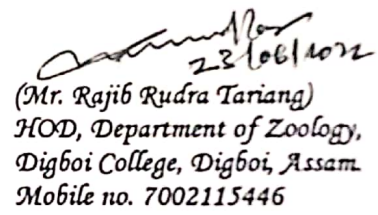 23/06/2022
(Mr. Rajib Rudra Tariang)
HOD, Department of Zoology,
Digboi College, Digboi, Assam
Mobile no. 7002115446